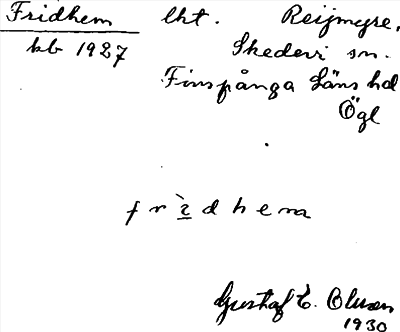 Fridhem lht. Reijmyre,
kb 1927 Skedevi sn.
Finspånga Läns hd
Ögl
frìdhem
Gustaf E. Olsson
1930